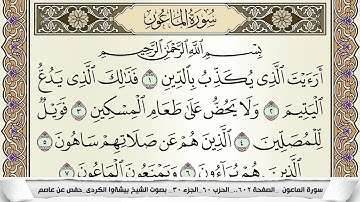 سُورَةُ المَاعُونِ
بِسْمِ اللَّهِ الرَّحْمَٰنِ الرَّحِيمِ
أَرَءَيْتَ الَّذِي يُكَذِّبُ بِالدِّينِ ١ فَذَٰلِكَ الَّذِي يَدُعُّ
الْيَتِيمَ ٢ وَلَا يَحُضُّ عَلَىٰ طَعَامِ الْمِسْكِينِ ٣ فَوَيْلٌ
لِّلْمُصَلِّينَ ٤ الَّذِينَ هُمْ عَن صَلَاتِهِمْ سَاهُونَ ٥
الَّذِينَ هُمْ يُرَآءُونَ ٦ وَيَمْنَعُونَ الْمَاعُونَ ٧
سورة الماعون .. الصفحة ٦٠٢ .. الحزب ٦٠ .. الجزء ٣٠ .. بصوت الشيخ بيشةوا الكردي .. حفص عن عاصم